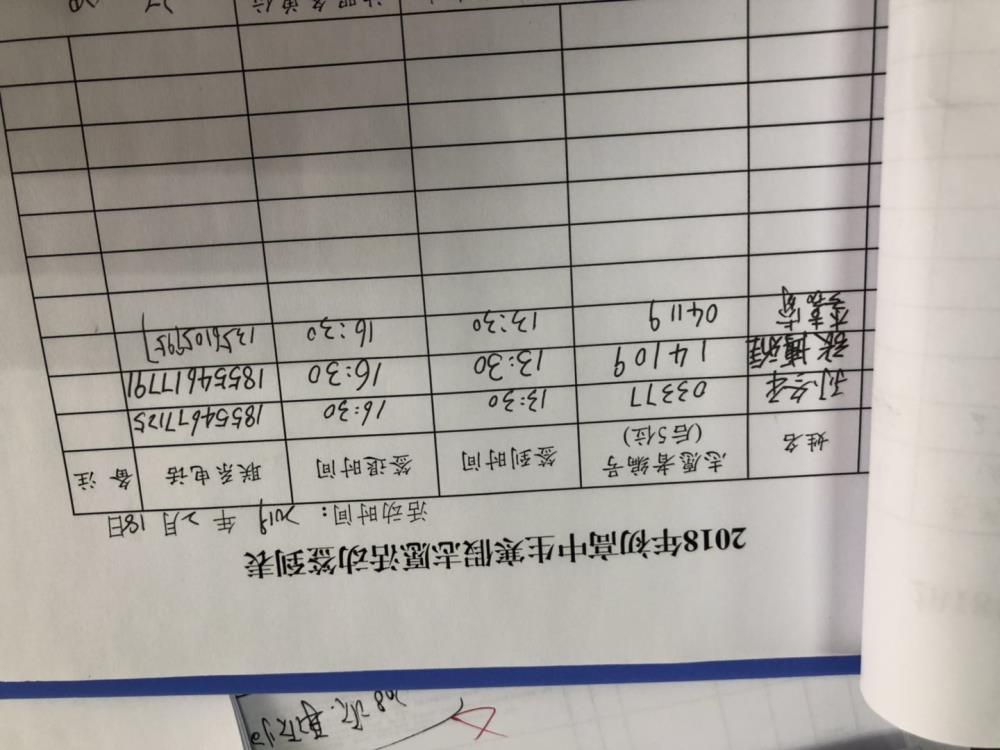 2018年初高中生寒假志愿活动签到表
活动时间: 2019年2月18日
姓名 志愿者编号(后5位) 签到时间 签退时间 联系电话 备注
03377 13:30 16:30 18554671125
张博雅 14109 13:30 16:30 18554617791
04119 13:30 16:30